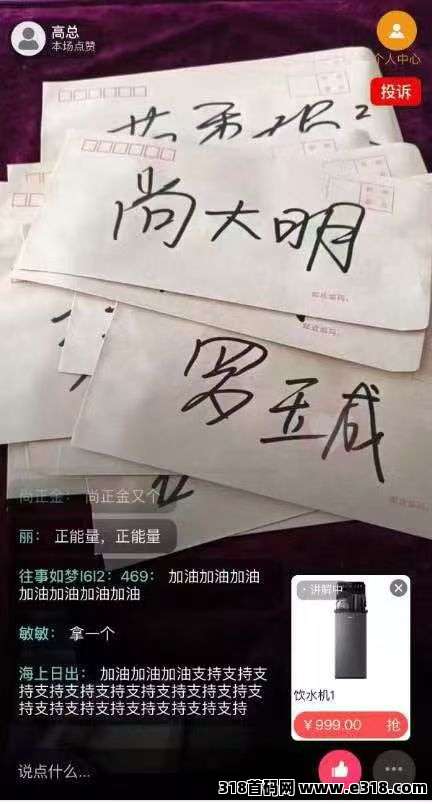 高总
本场点赞
个人中心
投诉
尚大明
邮政编码：
罗玉成
邮政编码：
尚正金： 尚正金又个
丽： 正能量，正能量
往事如梦I6I2：469： 加油加油加油
加油加油加油加油
敏敏： 拿一个
海上日出： 加油加油加油支持支持支
持支持支持支持支持支持支持支
持支持支持支持支持支持支持
讲解中
饮水机1
￥999.00 抢
说点什么...
318首码网 www.e318.com